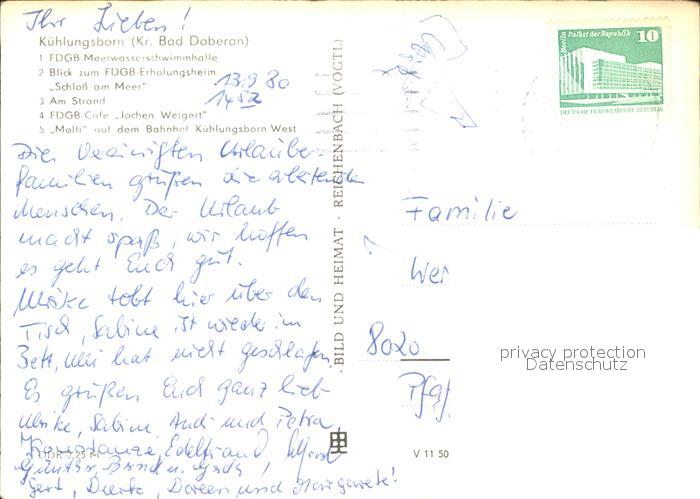 Ihr Lieben!
Kühlungsborn (Kr. Bad Doberan)
1 FDGB-Meerwasserschwimmhalle
2 Blick zum FDGB-Erholungsheim
„Schloß am Meer"
3 Am Strand
4 FDGB-Cafe „Jochen Weigert"
5 „Molli" auf dem Bahnhof Kühlungsborn West
13.9.80
14 52
Die Vereinigten Urlauber-
familien grüßen die arbeitenden
Menschen. Der Urlaub
macht Spaß, wir hoffen
es geht Euch gut.
Ulrike tobt hier über den
Tisch, Sabine ist wieder im
Bett, Ulli hat nicht geschlafen.
Es grüßen Euch ganz lieb
Ulrike, Sabine, Andi und Petra,
Konstanze, Edeltraud
Günther, Bernd u.
Gert, Doerte, Doreen und Margarete!
DDR 0,25 M
BILD UND HEIMAT · REICHENBACH (VOGTL)
V 11 50
Berlin Palast der Republik
10
DEUTSCHE DEMOKRATISCHE REPUBLIK
Familie
Wei
8020
privacy protection
Datenschutz